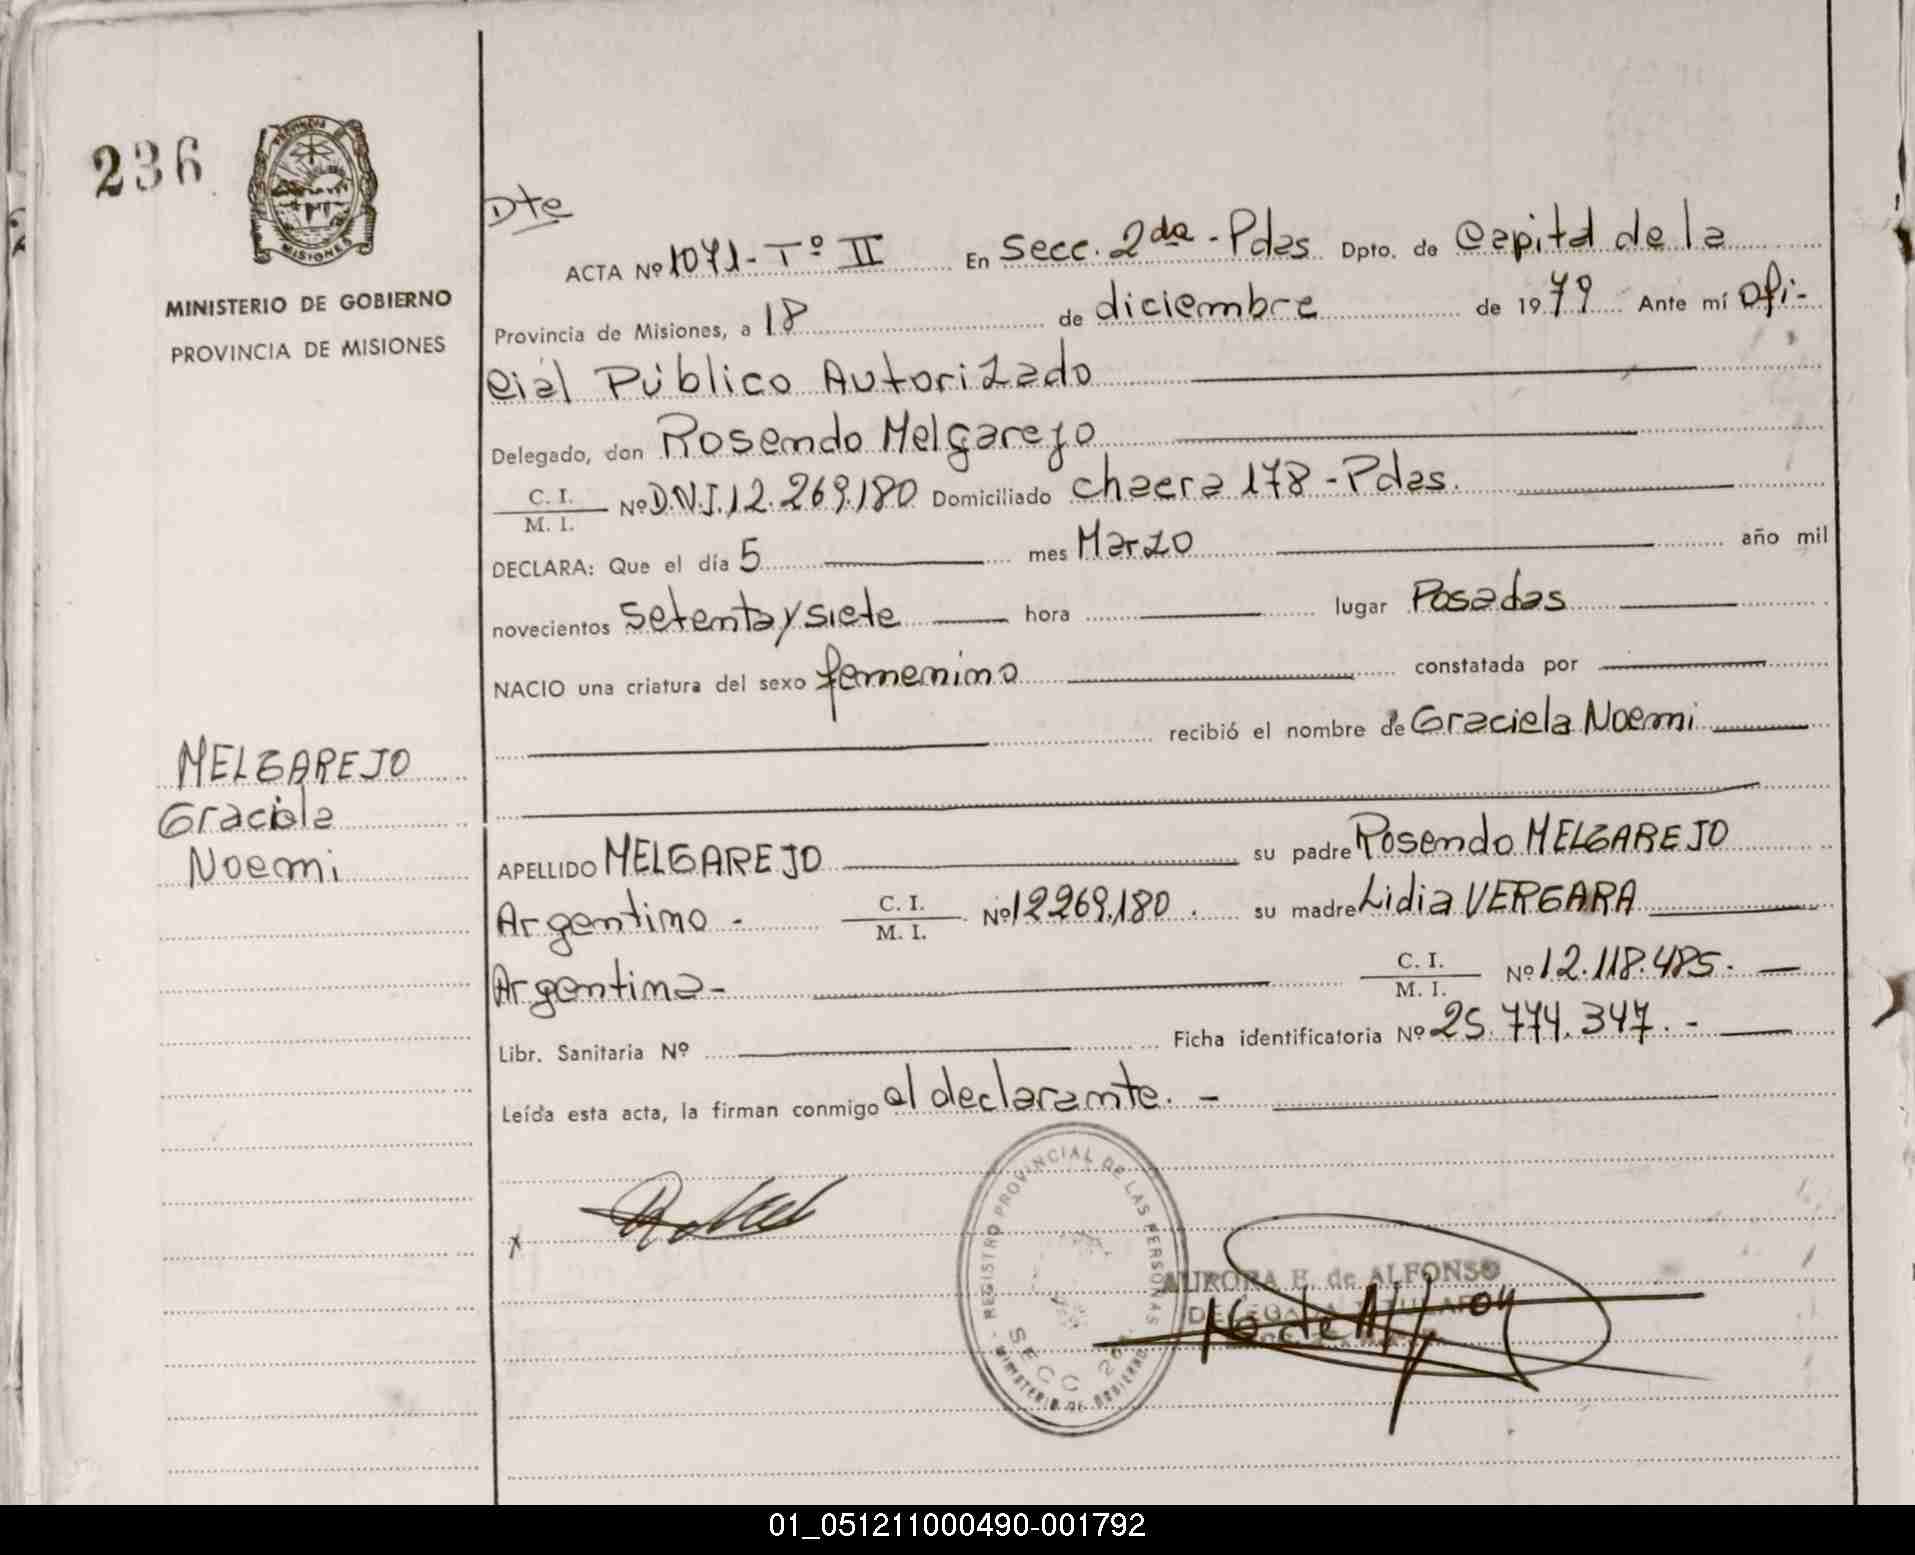 236
PROVINCIA DE
MISIONES
MINISTERIO DE GOBIERNO
PROVINCIA DE MISIONES
MELGAREJO
Graciela
Noemi
Dte
ACTA Nº 1071 - Tº II En Secc. 2da - Pdas Dpto. de Capital de la
Provincia de Misiones, a 18 de diciembre de 1979 Ante mí Ofi-
cial Público Autorizado
Delegado, don Rosendo Melgarejo
C. I.
M. I. Nº D.N.I. 12.269.180 Domiciliado chacra 178 - Pdas.
DECLARA: Que el día 5 mes Marzo año mil
novecientos setenta y siete hora lugar Posadas
NACIO una criatura del sexo femenino constatada por
recibió el nombre de Graciela Noemi
APELLIDO MELGAREJO su padre Rosendo MELGAREJO
Argentino - C. I.
M. I. Nº 12269.180. su madre Lidia VERGARA
Argentina - C. I.
M. I. Nº 12.118.485. -
Libr. Sanitaria Nº Ficha identificatoria Nº 25.774.347. -
Leída esta acta, la firman conmigo el declarante. -
x
REGISTRO PROVINCIAL DE LAS PERSONAS
SECC 2da.
MINISTERIO DE GOBIERNO
AURORA E. de ALFONSO
DELEGADA TITULAR
01_051211000490-001792